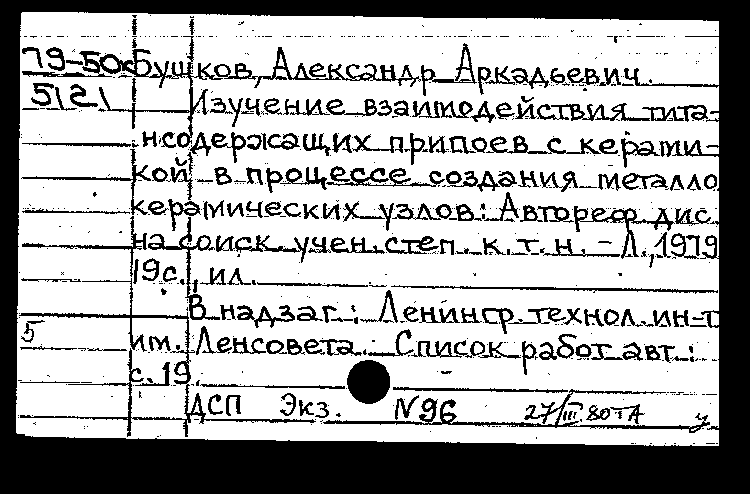 79-50к Бушков, Александр Аркадьевич.
5121 Изучение взаимодействия тита-
нсодержащих припоев с керами-
кой в процессе создания металло
керамических узлов: Автореф. дис.
на соиск. учен. степ. к. т. н. - Л., 1979
19 с., ил.
В надзаг.: Ленингр. технол. ин-т
5 им. Ленсовета. Список работ авт.:
с. 19.
ДСП Экз. N96 27/III.80 ТА у